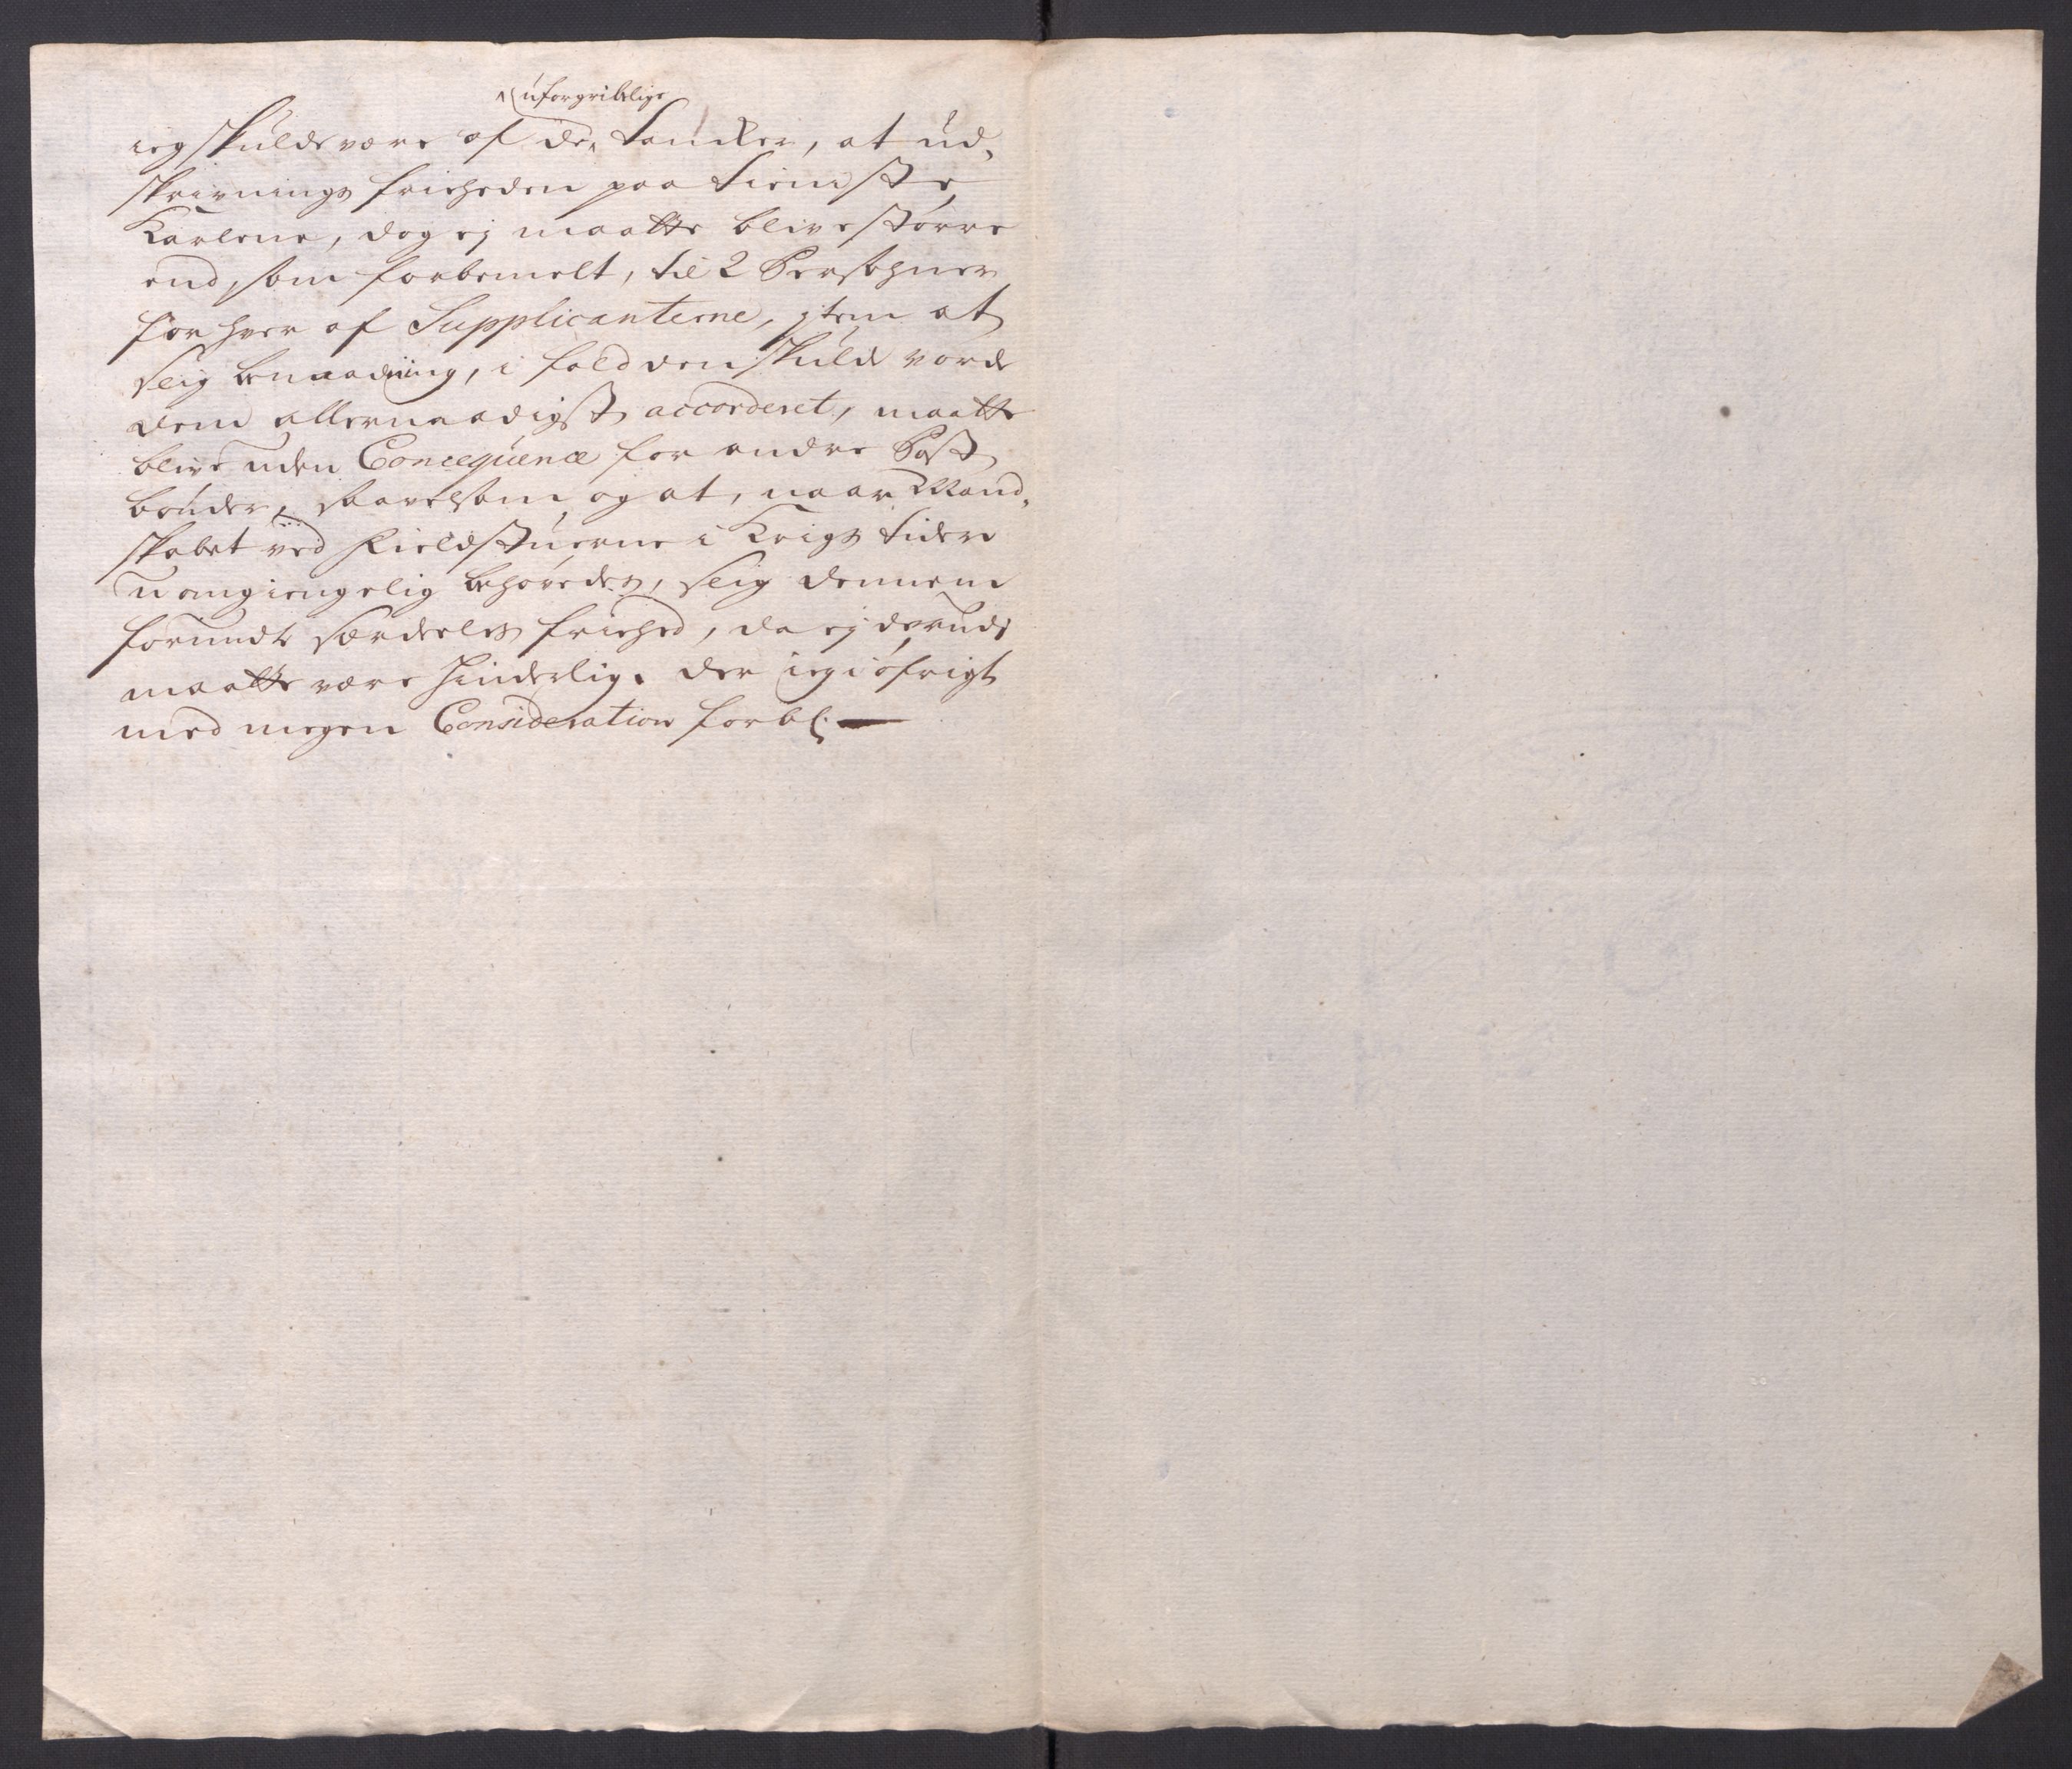 uforgribelige
ieg skulde være af de Tancker, at ud,
skrivnings frieheden paa tieniste
Karlene, dog ej maatte blive større
end, som forbemelt, til 2 Persohner
for hver af Supplicanterne, jtem at
slig benaading, i fald den skulde vorde
dem allernaadigst accorderet, maatte
blive uden Conceqúence for andre Post
bønder, saavelsom og at, naar Mand,
skabet ved Fieldstúerne i Krigs tider
uomgiengelig behøvedes, slig dennem
forundte særdeles friehed, da ej derudj
maatte være hinderlig. Der ieg i øfrigt
med megen Consideration forbl: